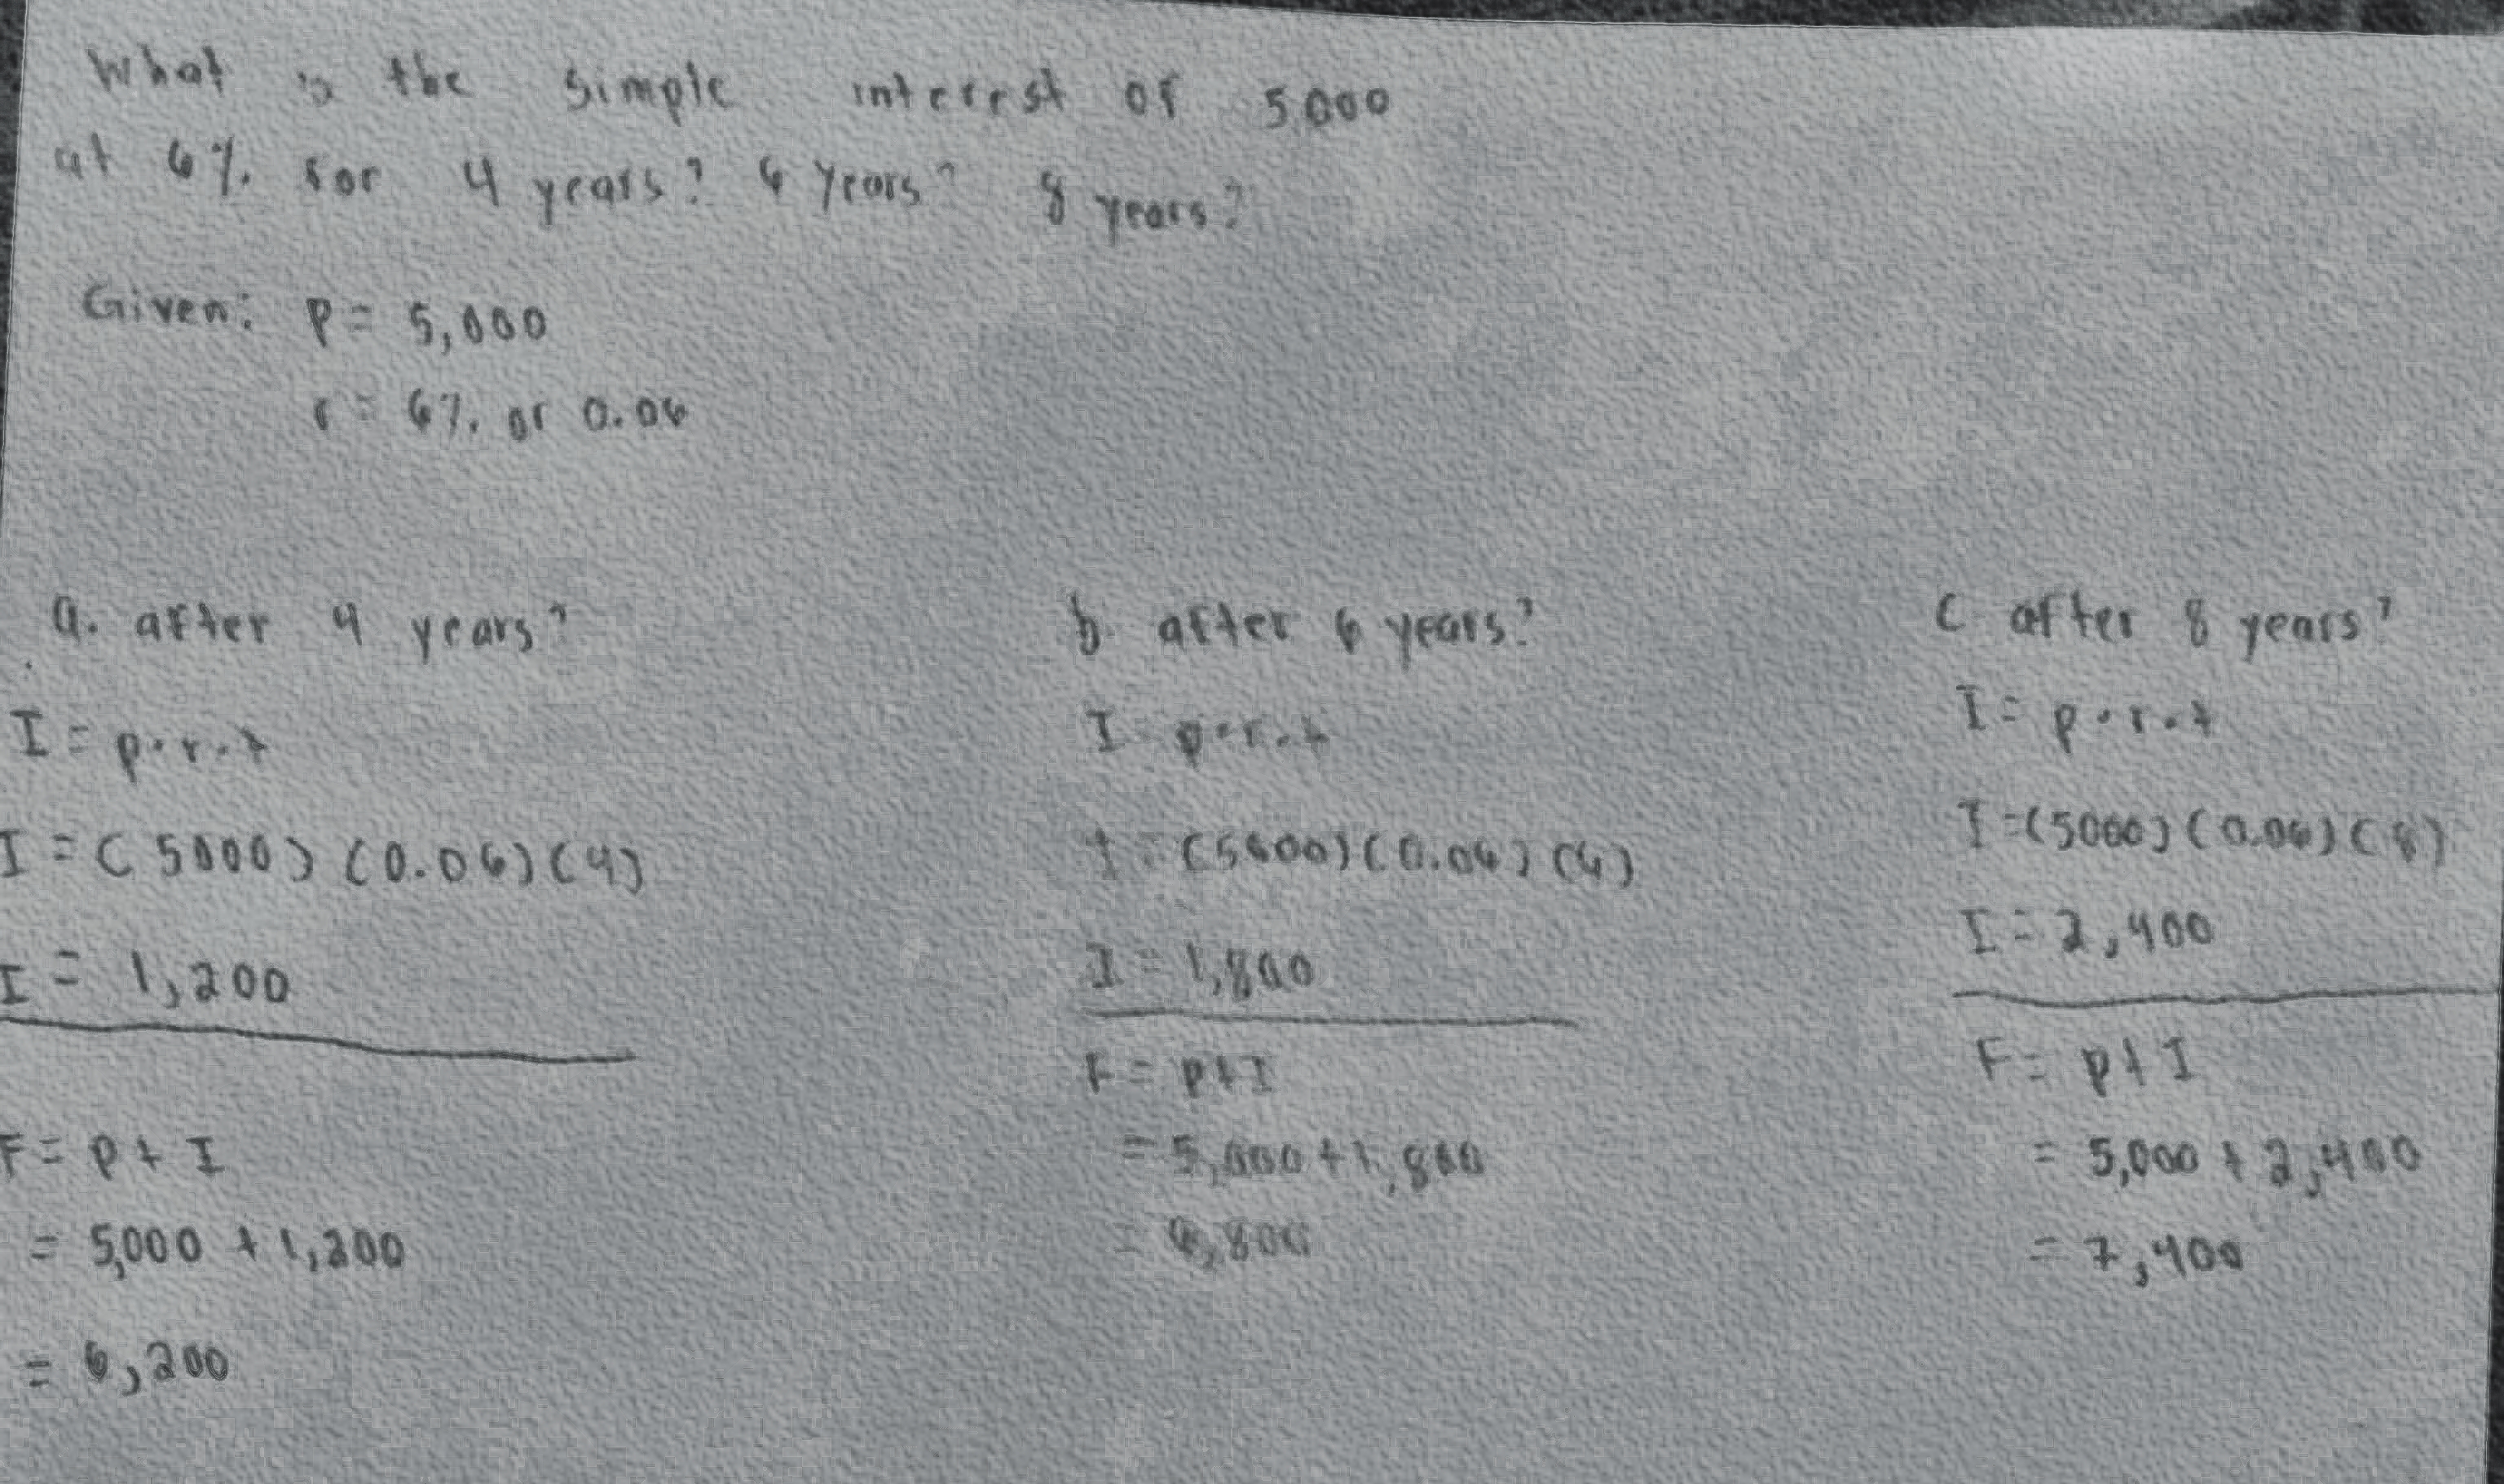 What is the simple interest of 5000
at 6% for 4 years? 6 years? 8 years?
Given: P = 5,000
r = 6% or 0.06
a. after 4 years?
I = p·r·t
I = (5000) (0.06) (4)
I = 1,200
F = P + I
= 5,000 + 1,200
= 6,200
b. after 6 years?
I = p·r·t
I = (5000) (0.06) (6)
I = 1,800
F = P + I
= 5,000 + 1,800
= 6,800
c after 8 years?
I = p·r·t
I = (5000) (0.06) (8)
I = 2,400
F = P + I
= 5,000 + 2,400
= 7,400